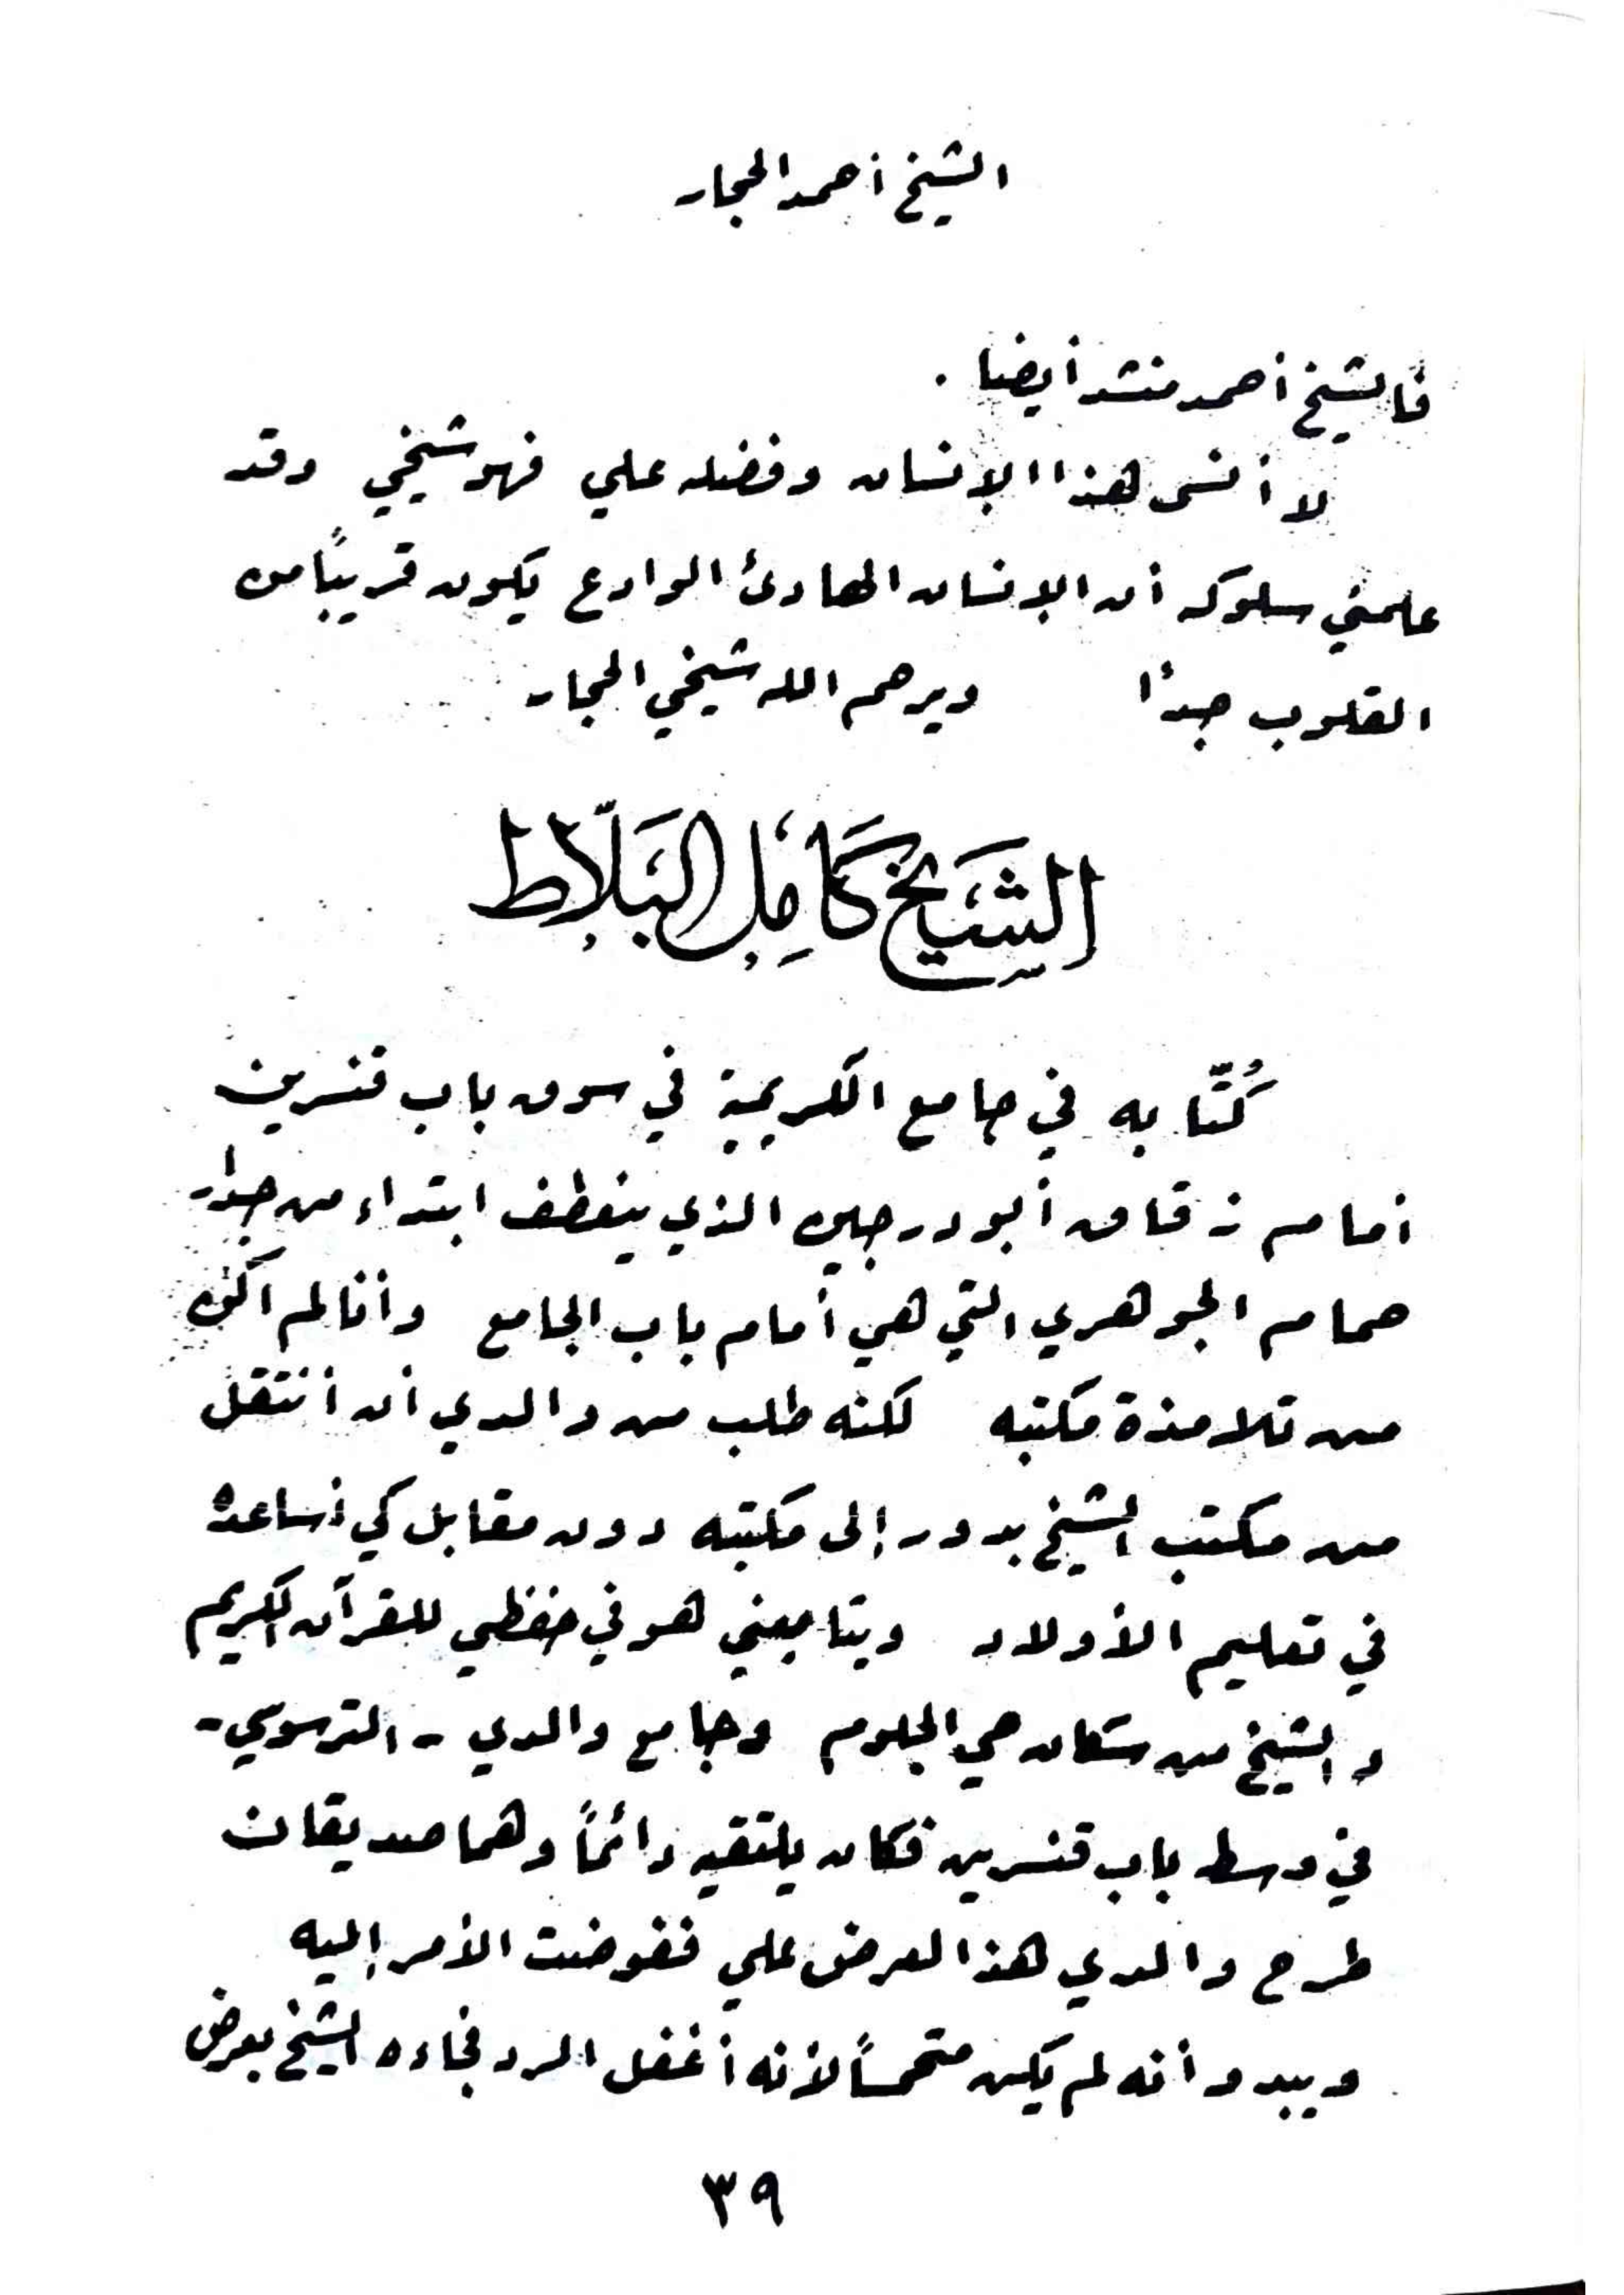 الشيخ أحمد الحجار
فالشيخ أحمد منشد أيضا .
لا أنسى هذا الإنسان وفضله علي فهو شيخي وقد
علمني سلوكه أن الإنسان الهادئ الوادع يكون قريبًا من
القلوب جدًا ويرحم الله شيخي الحجار
الشَيَخ كَامِل البَلّاط
كُتّابه في جامع الكريمية في سوق باب قنسرين
أمام زقاق أبو درجين الذي ينعطف ابتداء من جدار
حمام الجوهري التي هي أمام باب الجامع وأنا لم اكن
من تلامذة مكتبه لكنه طلب من والدي أن أنتقل
من مكتب الشيخ بدور إلى مكتبه دون مقابل كي أساعده
في تعليم الأولاد ويتابعني هو في حفظي للقرآن الكريم
والشيخ من سكان حي الجلوم وجامع والدي - الترسوسي -
في وسط باب قنسرين فكان يلتقيه دائماً وهما صديقان
طرح والدي هذا العرض علي ففوضت الأمر إليه
ويبدو أنه لم يكن متحمساً لأنه أغفل الرد فجاءه الشيخ بعرض
٣٩